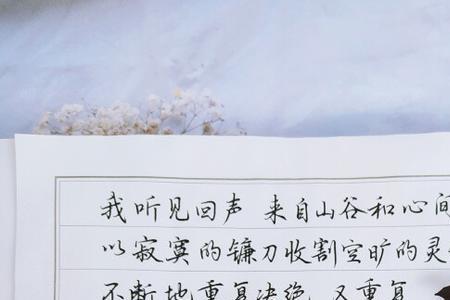 我听见回声 来自山谷和心间
以寂寞的镰刀收割空旷的灵
不断地重复决绝，又重复